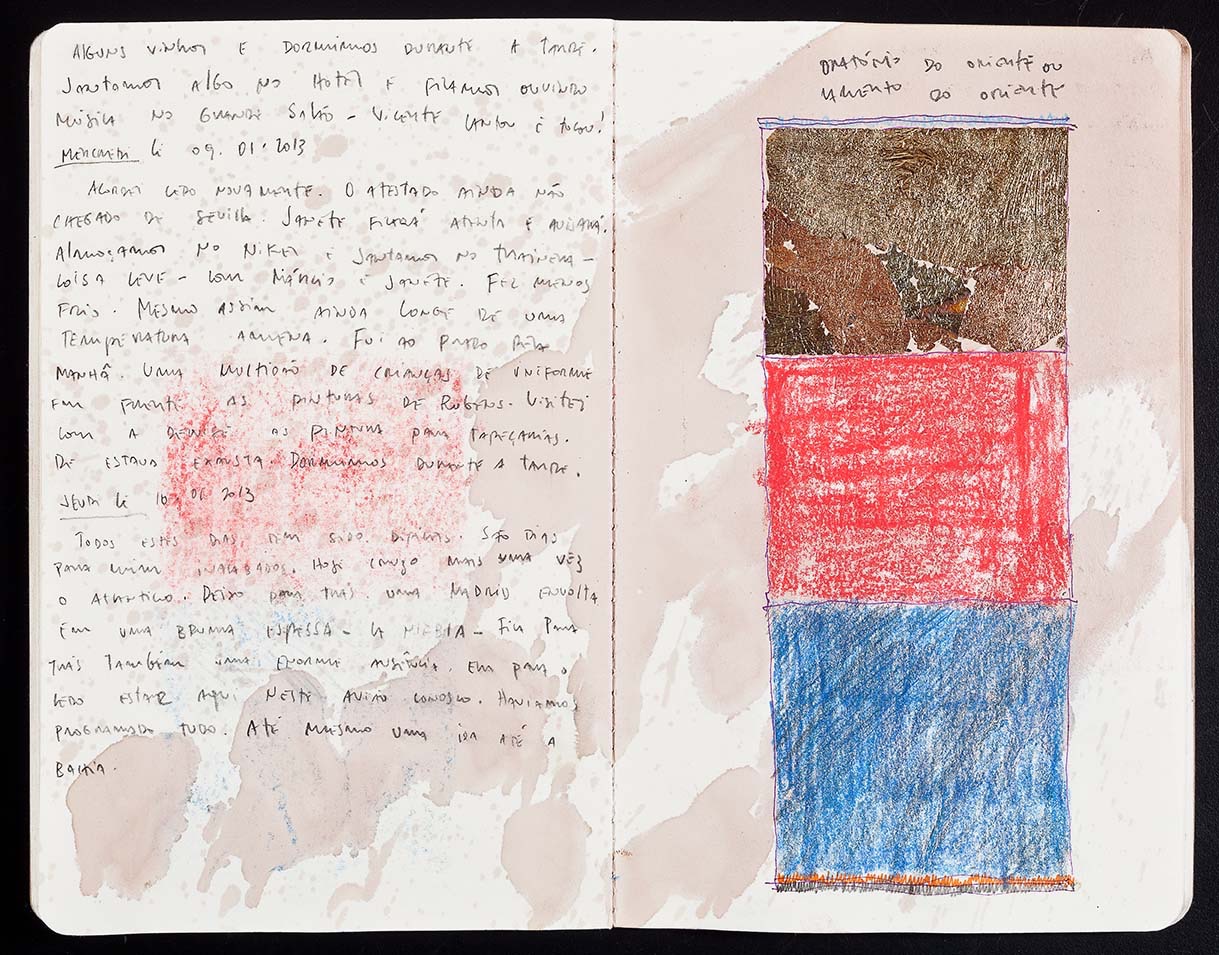 ALGUNS VINHOS E DORMIMOS DURANTE A TARDE.
JANTAMOS ALGO NO HOTEL E FICAMOS OUVINDO
MÚSICA NO GRANDE SALÃO – VICENTE CANTOU E TOCOU!
MERCREDI LE 09. 01. 2013
ACORDEI CEDO NOVAMENTE. O ATESTADO AINDA NÃO
CHEGADO DE SEVILLA. JANETE FICARÁ ATENTA E
ALMOÇAMOS NO NIKEI E JANTAMOS NO TRAINERA –
COISA LEVE – COM MÁRCIO E JANETE. FEZ MENOS
FRIO. MESMO ASSIM AINDA LONGE DE UMA
TEMPERATURA AMENA. FUI AO PRADO PELA
MANHÃ. UMA MULTIDÃO DE CRIANÇAS DE UNIFORME
EM FRENTE AS PINTURAS DE RUBENS. VISITEI
COM A DENISE AS PARA TAPEÇARIAS.
DE ESTAVA EXAUSTA. DORMIMOS DURANTE A TARDE.
JEUDI LE 10. 01 2013
TODOS ESTES DIAS TEM SIDO DIFÍCEIS. SÃO DIAS
PARA INACABADOS. HOJE CRUZO MAIS UMA VEZ
O ATLANTICO. DEIXO PARA TRÁS UMA MADRID ENVOLTA
EM UMA BRUMA ESPESSA – LA NIEBLA – FICA PARA
TRÁS TAMBÉM UMA ENORME AUSÊNCIA. ERA PARA O
LEDO ESTAR AQUI NESTE AVIÃO CONOSCO. HAVIAMOS
PROGRAMADO TUDO. ATÉ MESMO UMA IDA ATÉ A
BAHIA.
ORATÓRIO DO ORIENTE OU
LAMENTO DO ORIENTE